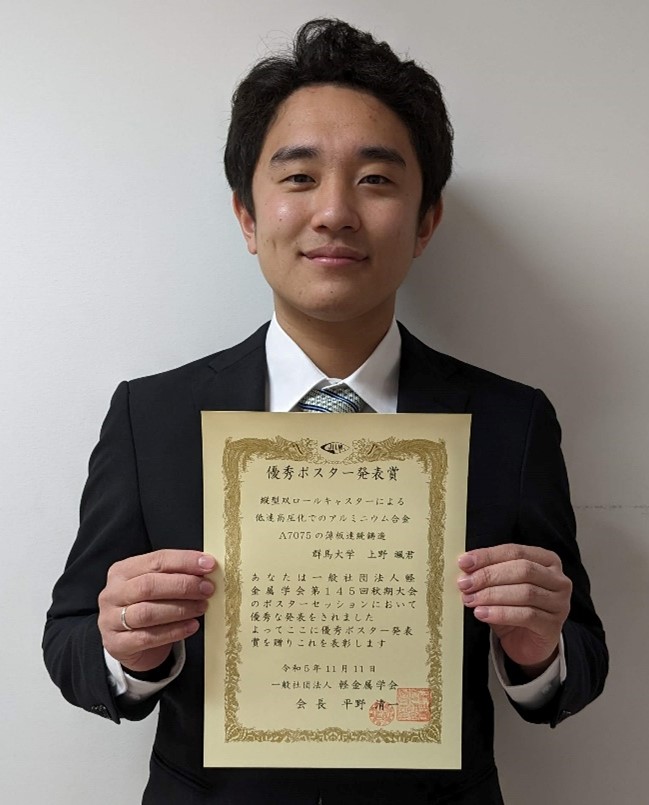 JILM
優秀ポスター発表賞
縦型双ロールキャスターによる
低速高圧化でのアルミニウム合金
A7075の薄板連続鋳造
群馬大学 上野 颯君
あなたは一般社団法人軽
金属学会第145回秋期大会
のポスターセッションにおいて
優秀な発表をされました
よってここに優秀ポスター発表
賞を贈りこれを表彰します
令和5年11月11日
一般社団法人 軽金属学会
会長 平野 清一